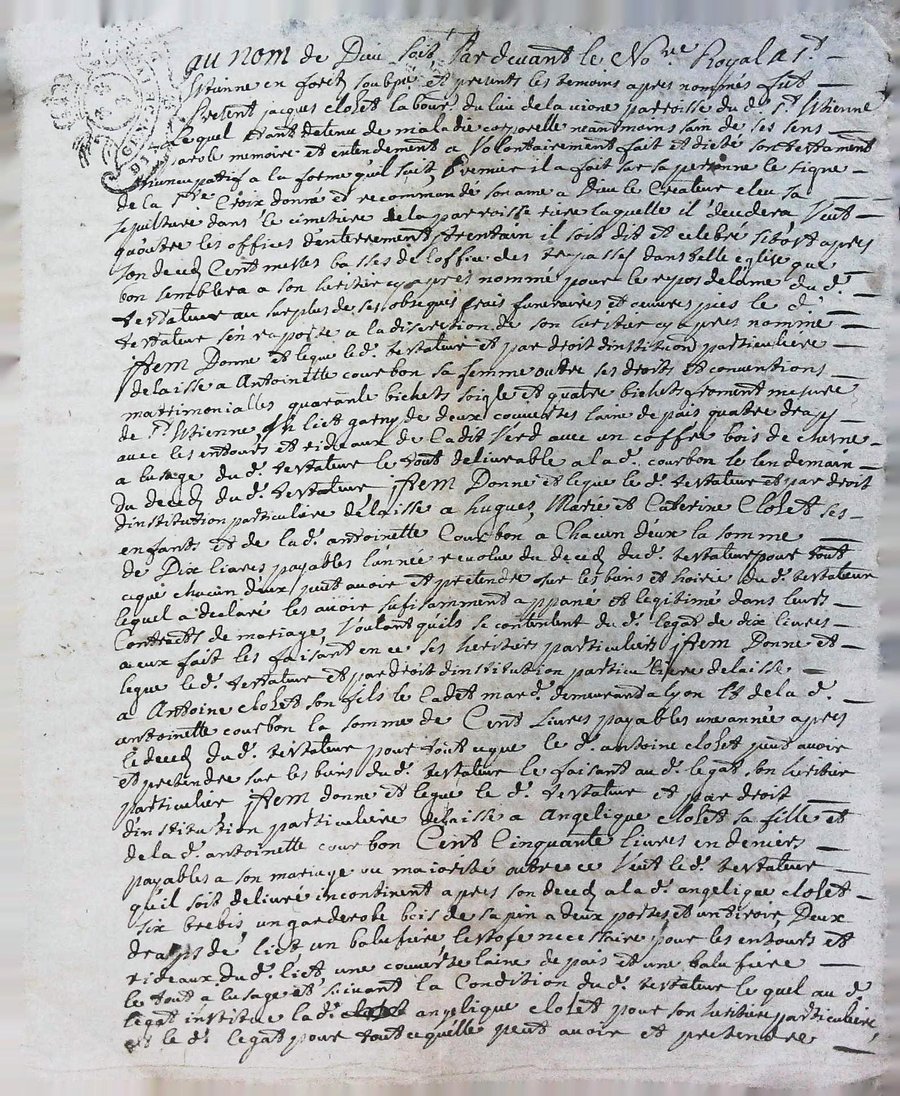 au nom de Dieu soit, Pardevant le No.re Royal a S.t
Estienne en forest soubpné et presents les temoins apres nommés fut
Present jacques closet laboureur du lieu de la vione parroisse du d. S.t Estienne
Lequel Etant detenu de maladie corporelle neantmoins sain de ses sens
parole memoire et entendement a Volontairement fait et dicté son testament
Nuncupatif a la forme qu'il suit, Premier il a fait sur sa personne le signe
de la S.te Croix donné et recommandé son ame a Dieu le Createur eleu sa
sepulture dans le cimetiere de la parroisse riere laquelle il decedera Veut
qu'outre les offices d'enterrement, trentain il soit dit et celebré sitost apres
son deced Cent messes basses de l'office des trepasses dans telle eglise que
bon semblera a son heritier cy apres nommé pour le repos de lame du d.
testateur au surplus de ses obseques frais funeraires et œuvres pies le d.
testateur s'en raporte a la discretion de son heritier cy apres nommé
jtem Donne et legue le d. testateur et par droit dinstitution particuliere
delaisse a Antoinette courbon sa femme outre ses droits et conventions
matrimonialles quarante bichets soigle et quatre bichets froment mesure
de S.t Estienne un lict garny de deux couvertes laine de pais quatre draps
avec les entours et rideaux de Cadit Verd avec un coffre bois de chesne
a lusage du d. testateur le tout delivrable a la d. courbon le lendemain
du deced du d. testateur jtem Donne et legue le d. testateur et par droit
dinstitution particuliere delaisse a hugues, Marie et Catherine Closet ses
enfants et de la d. antoinette Courbon a Chacun deux la somme
de Dix livres payables l'année revolue du deced du d. testateur pour tout
ceque chacun d'eux peut avoir et pretendre sur les biens et hoirie du d. testateur
lequel a declaré les avoir sufisamment appané et legitimé dans leurs
Contracts de mariage, Voulant qu'ils se contentent du d. legat de dix livres
a eux fait les faisant en ce ses heritiers particuliers jtem Donne et
legue le d. testateur et par droit dinstitution particuliere delaisse
a Antoine closet son fils le Cadet mar.d demeurant a lyon Et de la d.
antoinette courbon la somme de Cent Livres payables une année apres
le deced du d. testateur pour tout ceque le d. antoine closet peut avoir
et pretendre sur les biens du d. testateur le faisant au d. legat son heritier
particulier jtem donne et legue le d. testateur et par droit
dinstitution particuliere delaisse a Angelique closet sa fille et
de la d. antoinette courbon Cent Cinquante livres en deniers
payables a son mariage ou majorité outre ce Veut le d. testateur
qu'il soit delivré incontinent apres son deced a la d. angelique closet
six brebis, un garderobe bois de sapin a deux portes et un tiroir, Deux
draps de lict, un balufiere lestofe necessaire pour les entours et
rideaux du d. lict une couverte laine de pais et une balufiere
le tout a lusage et suivant la Condition du d. testateur le quel au d.
legat institue la d. angelique closet pour son heritiere particuliere,
et le d. legat pour tout ce qu'elle peut avoir et pretendre